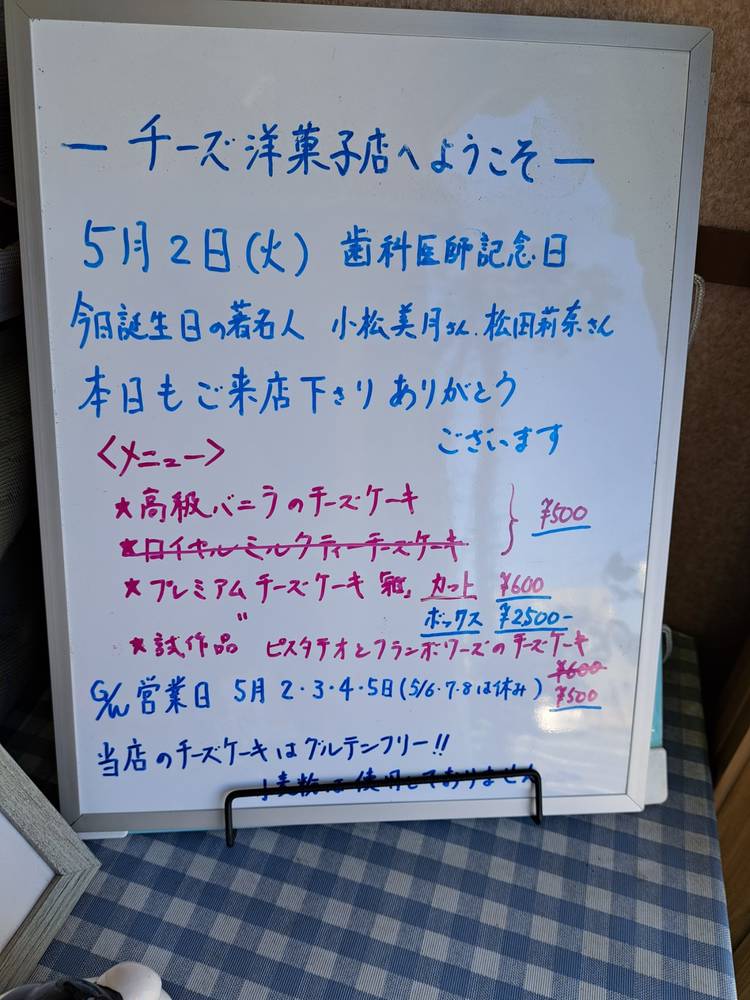 ー チーズ洋菓子店へようこそ ー
5月2日(火) 歯科医師記念日
今日誕生日の著名人 小松美月さん、松田莉奈さん
本日もご来店下さり ありがとう
ございます
<メニュー>
★高級バニラのチーズケーキ
¥500
★ロイヤルミルクティーチーズケーキ
★プレミアムチーズケーキ カット ¥600
〃 ボックス ¥2500-
★試作品 ピスタチオとフランボワーズのチーズケーキ
¥600
G/W 営業日 5月 2・3・4・5日(5/6・7・8は休み) ¥500
当店のチーズケーキはグルテンフリー!!
小麦粉は使用しておりません